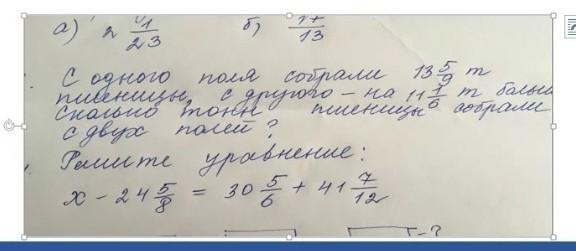 а) 2 1/23 б) 17/13
С одного поля собрали 13 5/9 т
пшеницы, с другого – на 11 1/6 т больш
сколько тонн пшеницы собрали
с двух полей?
Решите уравнение:
x - 24 5/8 = 30 5/6 + 41 7/12
-?